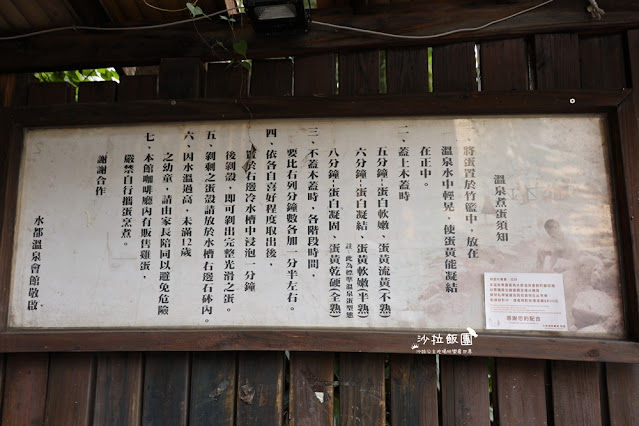 溫泉煮蛋須知
將蛋置於竹籃中，放在
溫泉水中輕晃，使蛋黃能凝結
在正中。
二、蓋上木蓋時
五分鐘--蛋白軟嫩、蛋黃流黃(不熟)
六分鐘--蛋白凝結、蛋黃軟嫩(半熟)
註：此為標準溫泉蛋型態
八分鐘--蛋白凝固、蛋黃乾硬(全熟)
三、不蓋木蓋時，各階段時間，
要比右列分鐘數各加一分半左右。
四、依各自喜好程度取出後，
置於右邊冷水槽中浸泡一分鐘
後剝殼，即可剝出完整光滑之蛋。
五、剝剩之蛋殼請放於水槽右邊石砵內。
六、因水溫過高，未滿12歲
之幼童，請由家長陪同以避免危險
七、本館咖啡廳內有販售雞蛋，
嚴禁自行攜蛋烹煮。
謝謝合作
水都溫泉會館敬啟
感謝您的配合
沙拉飯團